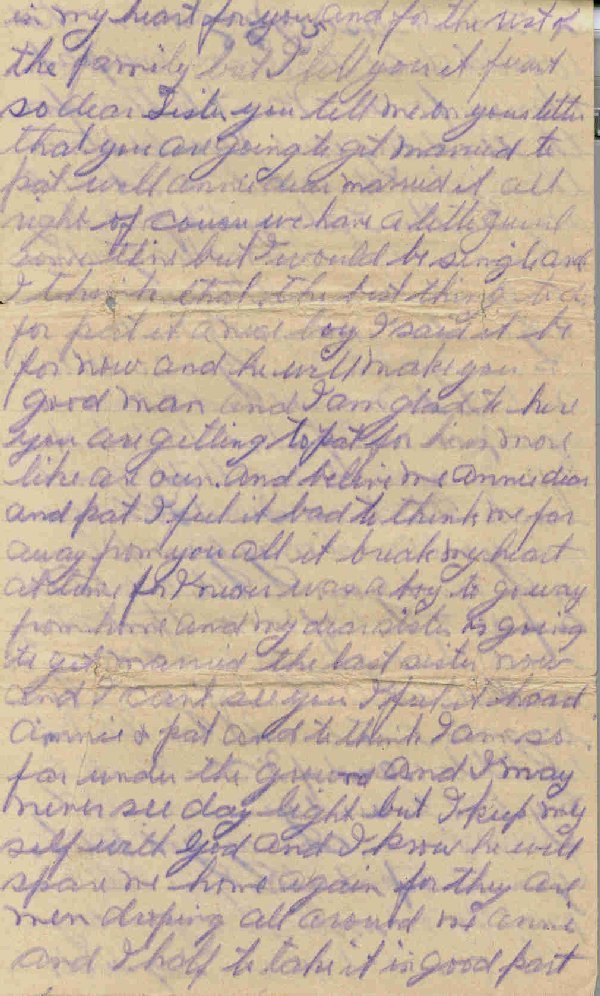 in my heart for you and for the rest of
the family but I tell you it
so dear Sister you tell me on your letter
that you are going to get married to
pat well annie dear married it all
right of course we have a little
some time but I would be single and
I think that the best thing to do
for pat it a nice boy I said it be
for now and he will make you a
good man and I am glad to here
you are getting to pat for hims more
like are own. and believe me annie dear
and pat I feel it bad to think me far
away from you all it break my heart
at time for I never was a boy to go way
from home and my dear sister is going
to get married the last sister now
and I cant see you I feel it hoad
annie & pat and to think I am so
far under the ground and I may
never see day light but I keep my
self with god and I know he will
spare me home again for they are
men droping all around me annie
and I half to take it in good part